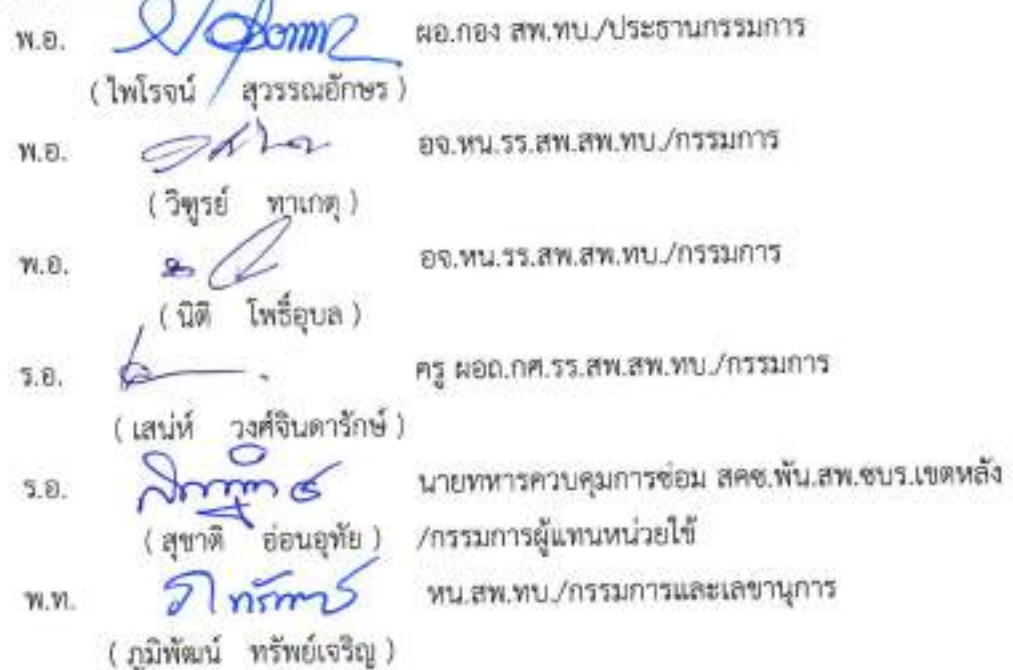 พ.อ. ผอ.กอง สพ.ทบ./ประธานกรรมการ
( ไพโรจน์ สุวรรณอักษร )
พ.อ. อจ.หน.รร.สพ.สพ.ทบ./กรรมการ
( วิฑูรย์ ทาเกตุ )
พ.อ. อจ.หน.รร.สพ.สพ.ทบ./กรรมการ
( นิติ โพธิ์อุบล )
ร.อ. ครู ผอถ.กศ.รร.สพ.สพ.ทบ./กรรมการ
( เสน่ห์ วงศ์จินดารักษ์ )
ร.อ. นายทหารควบคุมการซ่อม สคซ.พัน.สพ.ซบร.เขตหลัง
( สุชาติ อ่อนอุทัย ) /กรรมการผู้แทนหน่วยใช้
พ.ท. หน.สพ.ทบ./กรรมการและเลขานุการ
( ภูมิพัฒน์ ทรัพย์เจริญ )